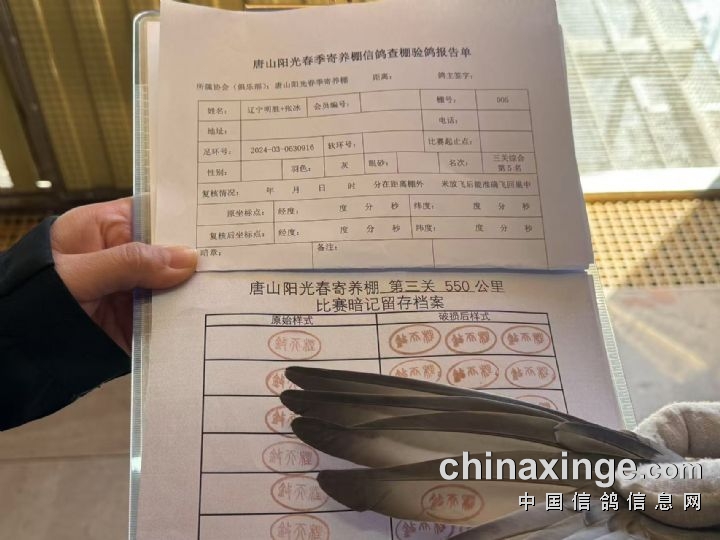 唐山阳光春季寄养棚信鸽查棚验鸽报告单
所属协会（俱乐部）：唐山阳光春季寄养棚 距离： 鸽主签字：
姓名： 辽宁明胜+张冰 会员编号： 棚号： 005
地址： 电话：
足环号： 2024-03-0630916 软环号： 比赛起止点：
性别： 羽色： 灰 眼砂： 名次： 三关综合
第5名
复核情况： 年 月 日 时 分在距离棚外 米放飞后能准确飞回巢中
原坐标点： 经度： 度 分 秒 纬度： 度 分 秒
复核后坐标点： 经度： 度 分 秒 纬度： 度 分 秒
暗章： 备注：
唐山阳光春寄养棚 第三关 550 公里
比赛暗记留存档案
原始样式 破损后样式
chinaxinge.com
中国信鸽信息网